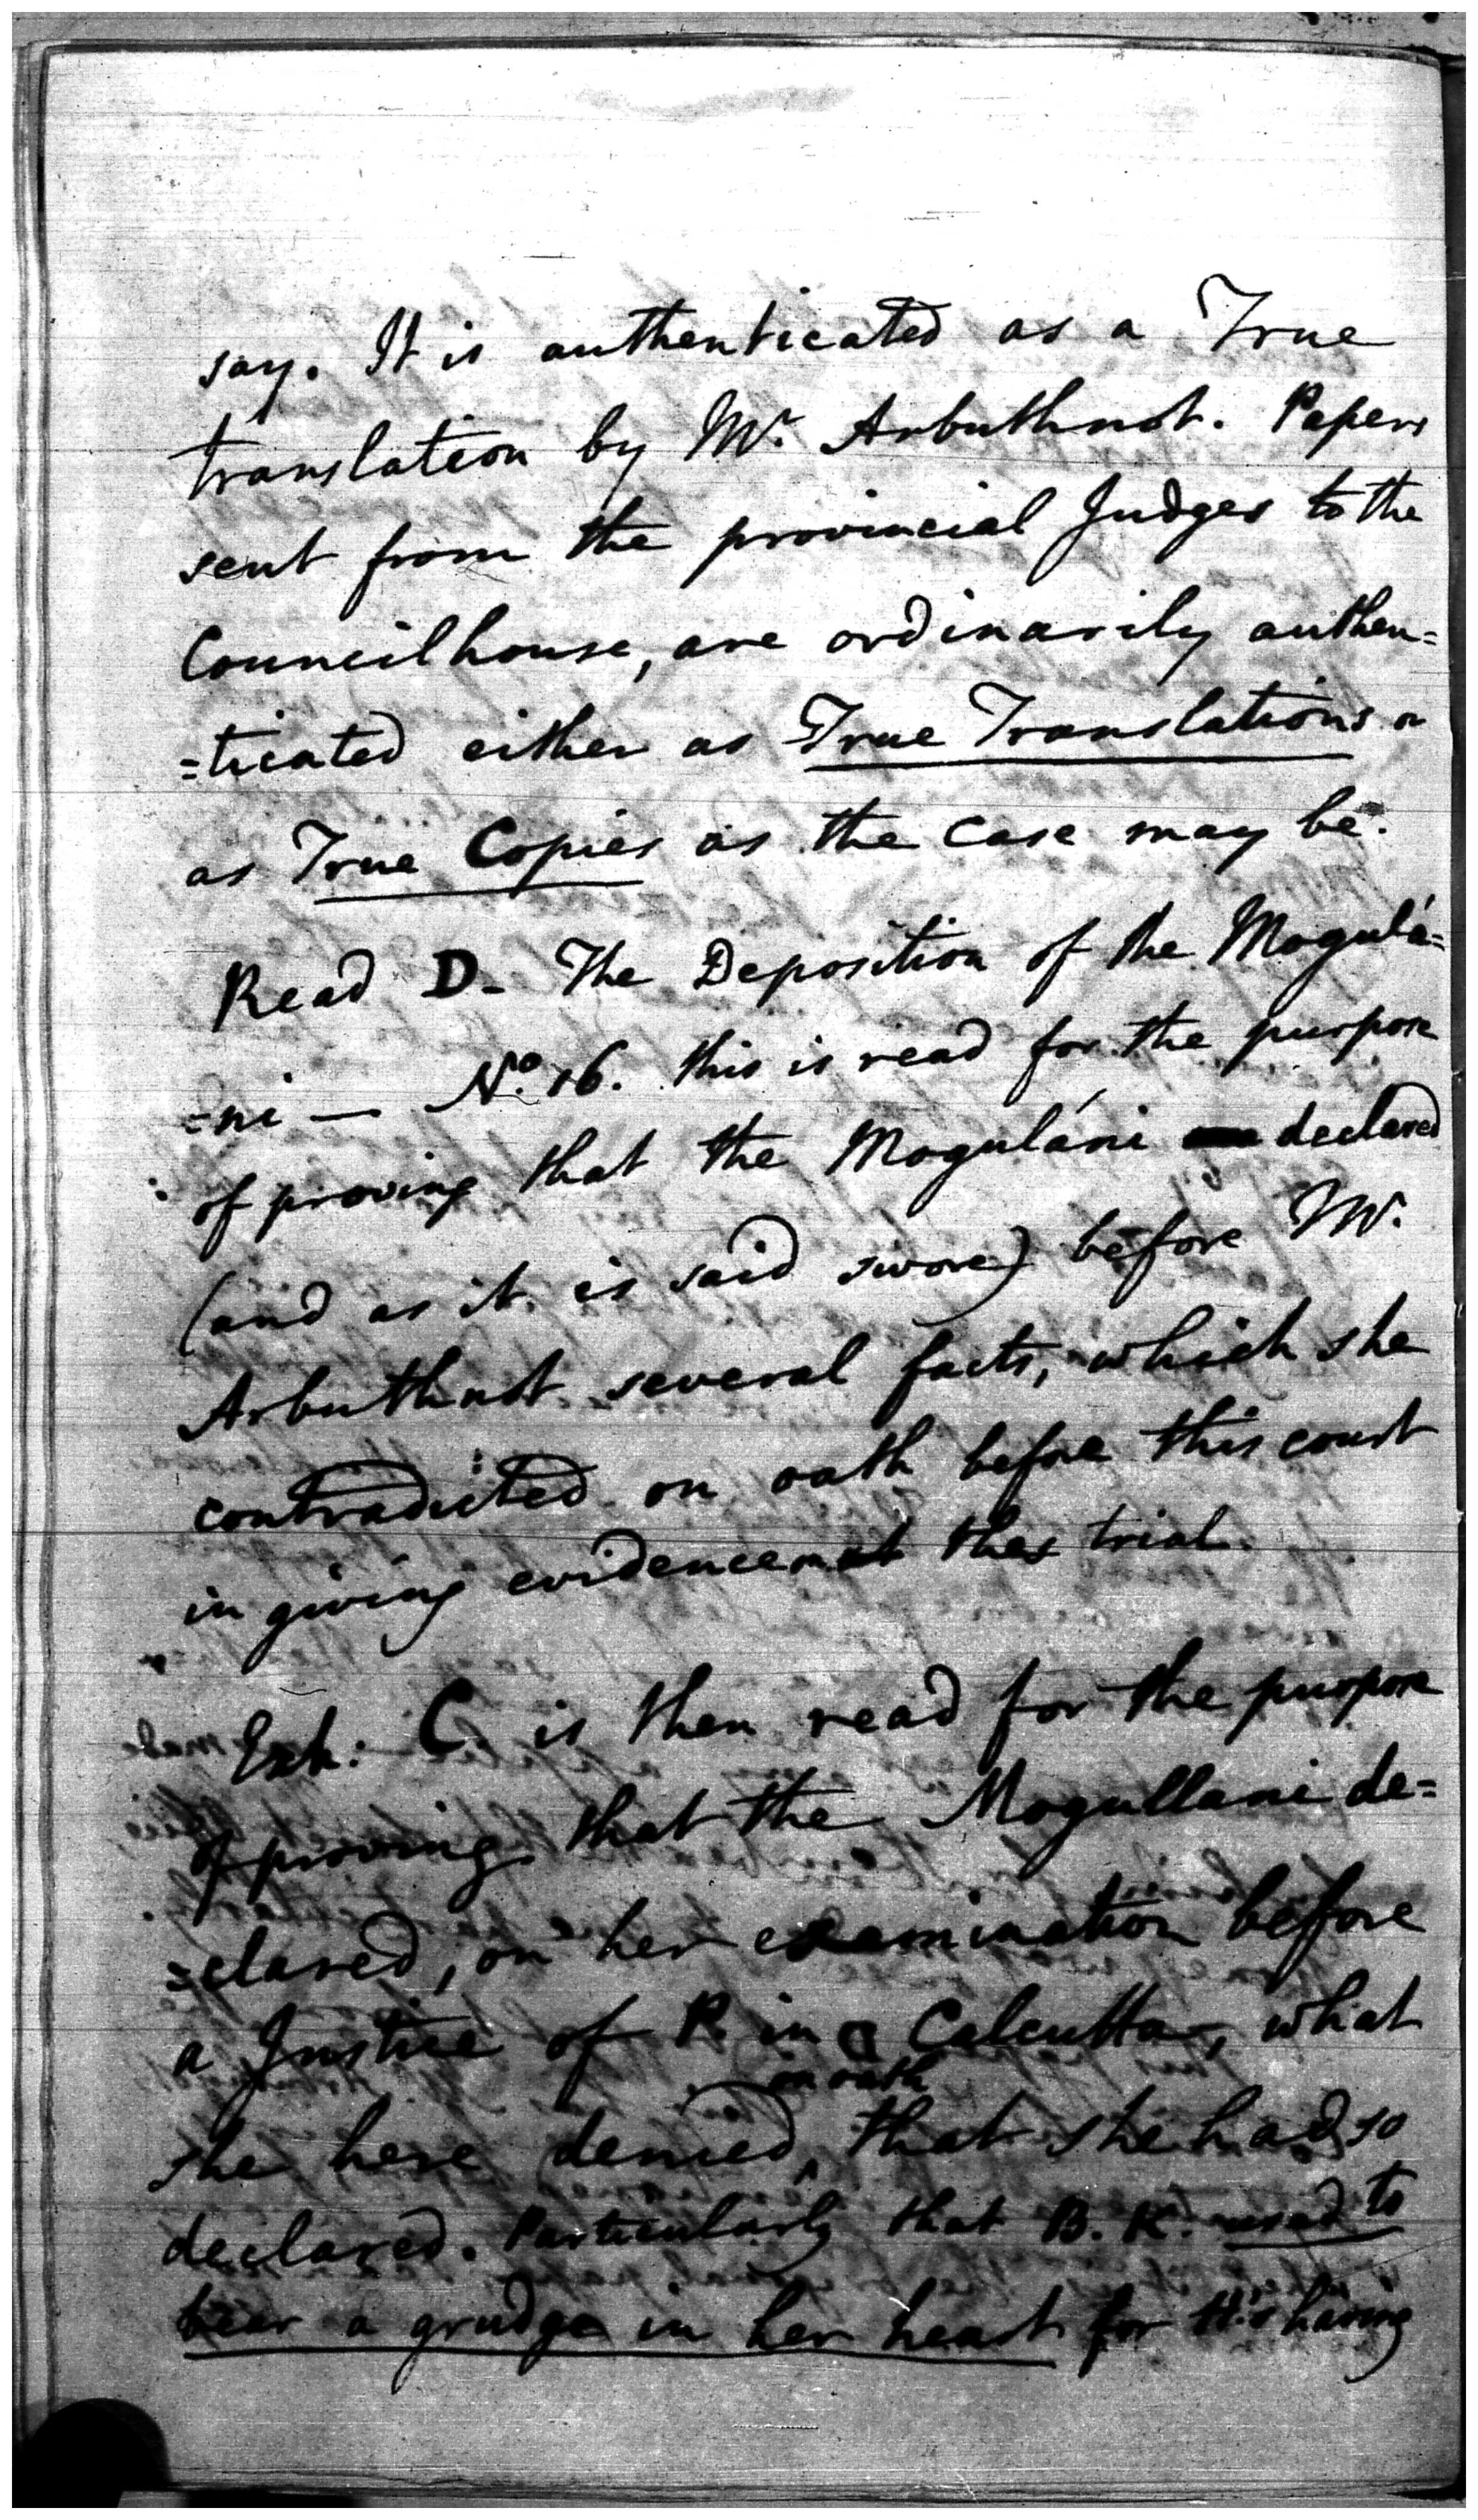 say. It is authenticated as a True
translation by Mr. Arbuthnot. Papers
sent from the provincial Judges to the
Councilhouse, are ordinarily authen=
=ticated either as True Translations or
as True Copies as the case may be.
Read D. The Deposition of the Mogulá=
=ni — No. 16. this is read for the purpose
of proving that the Moguláni declared
(and as it is said swore) before Mr.
Arbuthnot several facts, which she
contradicted on oath before this court
in giving evidence at the trial.
Exh: C. is then read for the purpose
of proving that the Mogullani de=
=clared, on her examination before
a Justice of P. in Calcutta, what
on oath
she here denied, that she had so
declared. Particularly that B. K. used to
bear a grudge in her heart for H's having